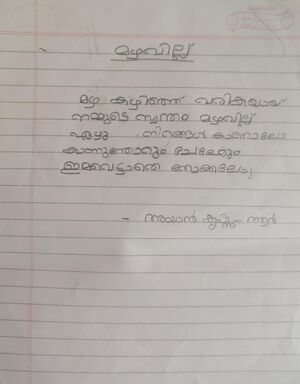 മഴവില്ല്
മഴ കഴിഞ്ഞ് വരികയായ്
നമ്മുടെ സ്വന്തം മഴവില്ല്
ഏഴു നിറങ്ങൾ കാണാലോ
കാണുന്തോറും ചേലേറും
ഇമവെട്ടാതെ നോക്കലോ!
- അയാൻ കൃഷ്ണ - ആർ